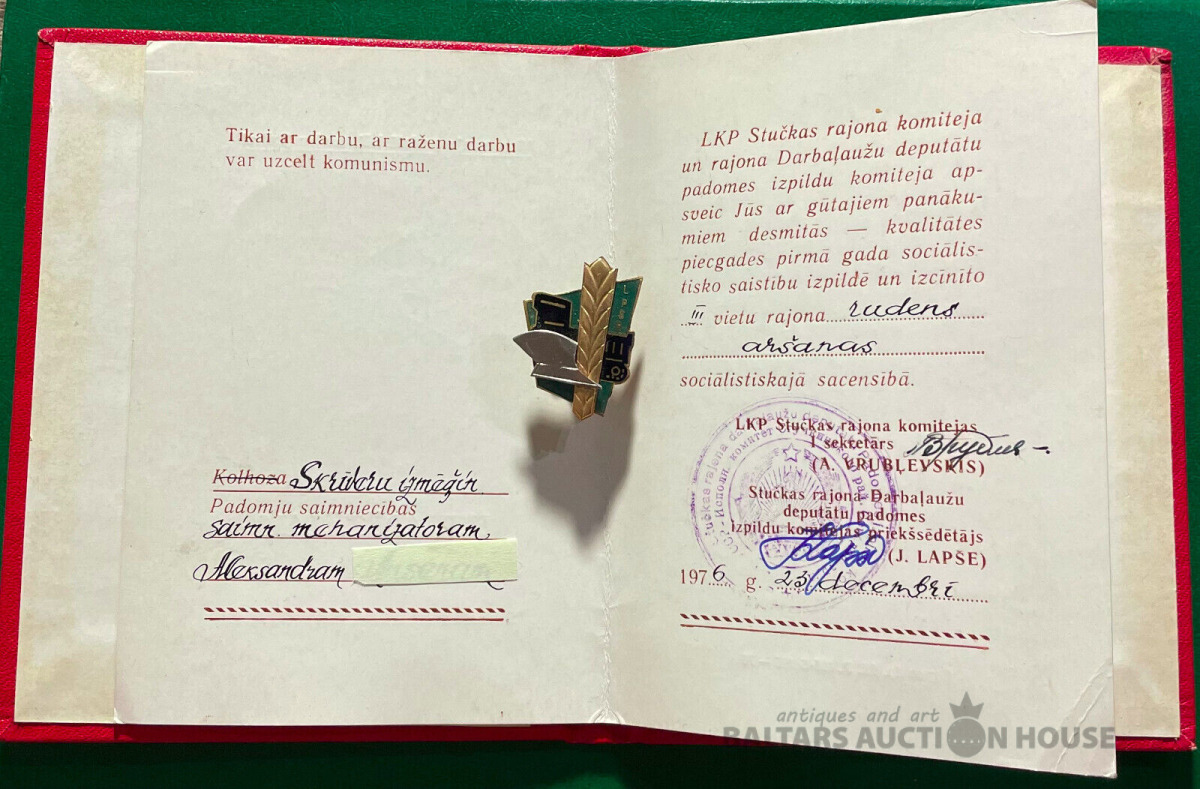 Tikai ar darbu, ar raženu darbu
var uzcelt komunismu.
Kolhoza Skrīveru izmēģin.
Padomju saimniecības
saimn. mehanizatoram,
Aleksandram
LKP Stučkas rajona komiteja
un rajona Darbaļaužu deputātu
padomes izpildu komiteja ap-
sveic Jūs ar gūtajiem panāku-
miem desmitās — kvalitātes
piecgades pirmā gada sociālis-
tisko saistību izpildē un izcīnīto
III vietu rajona rudens
aršanas
sociālistiskajā sacensībā.
LKP Stučkas rajona komitejas
I sekretārs
(A. VRUBĻEVSKIS)
Stučkas rajona Darbaļaužu
deputātu padomes
izpildu komitejas priekšsēdētājs
(J. LAPŠE)
1976 g. 23 decembrī
antiques and art
BALTARS AUCTION HOUSE